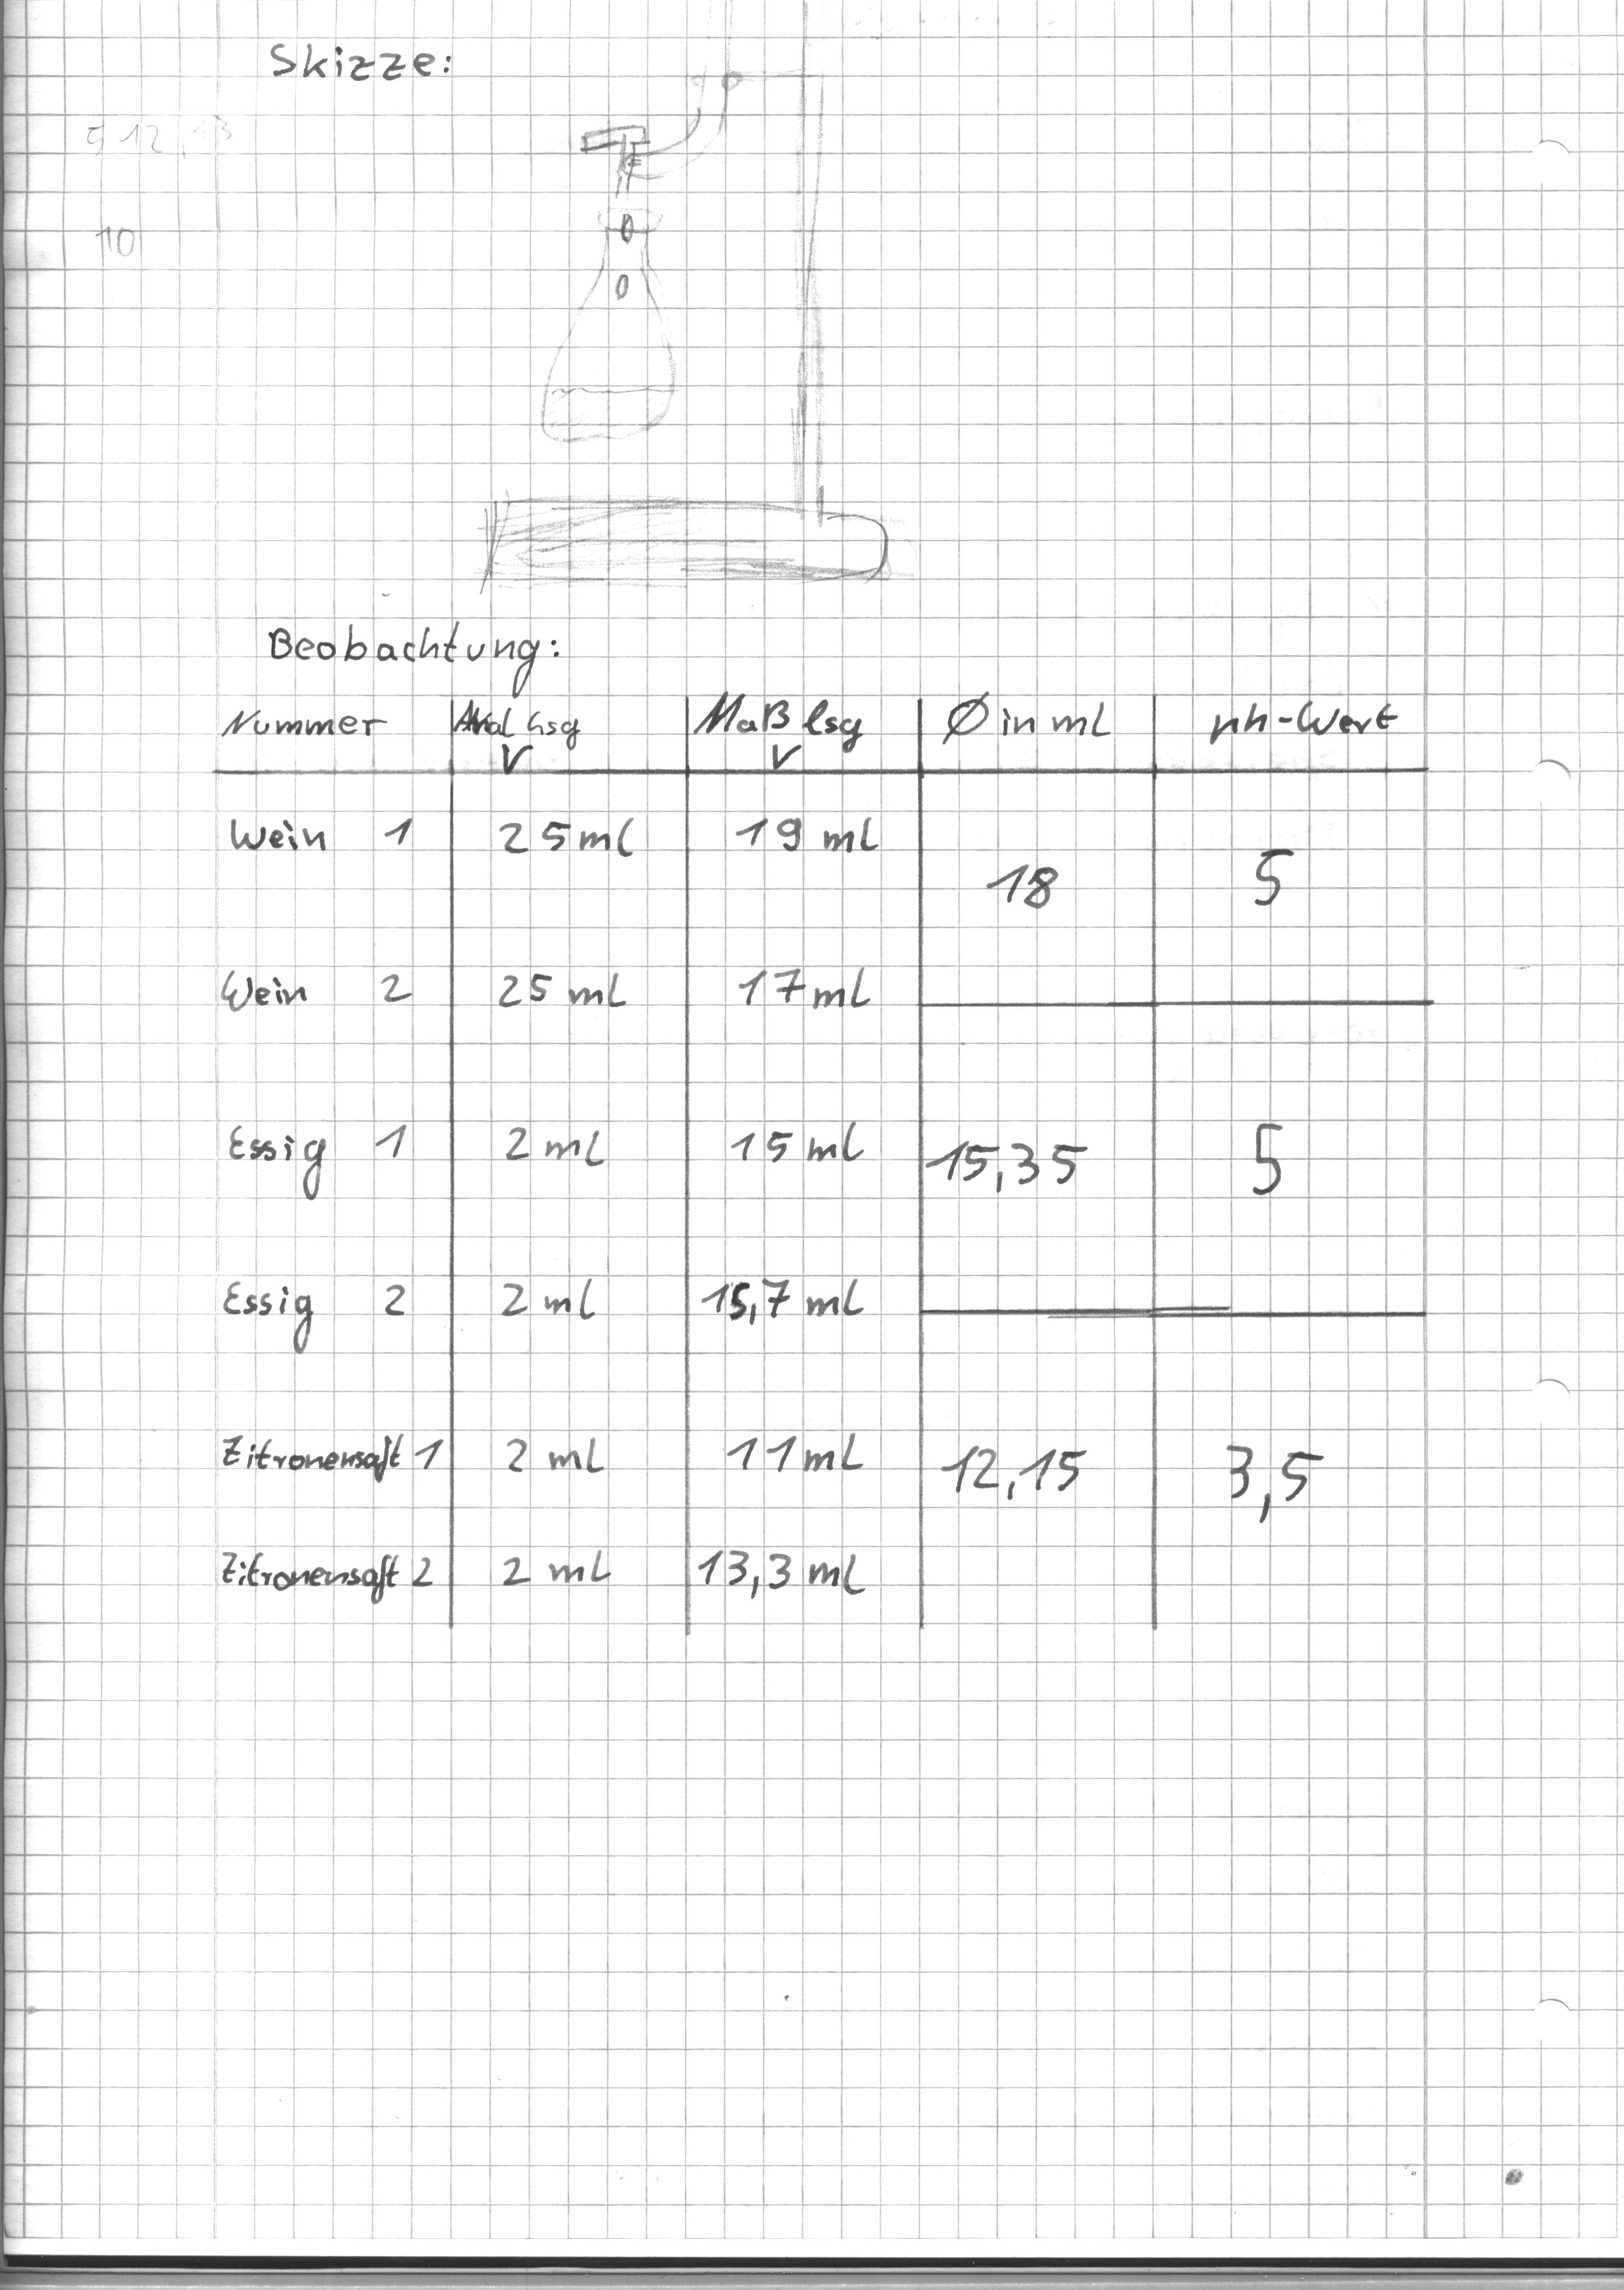 Skizze:
5 12,13
10
Beobachtung:
Nummer Anal Lsg V Maß lsg V Ø in ml ph-Wert
Wein 1 25 ml 19 ml
18 5
Wein 2 25 ml 17 ml
Essig 1 2 ml 15 ml 15,35 5
Essig 2 2 ml 15,7 ml
Zitronensaft 1 2 ml 11 ml 12,15 3,5
Zitronensaft 2 2 ml 13,3 ml